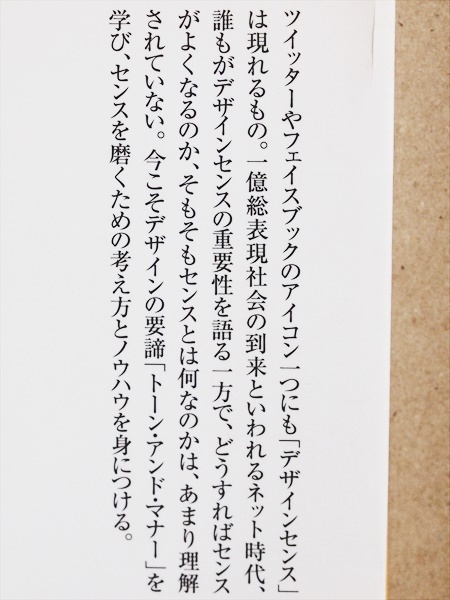 ツイッターやフェイスブックのアイコン一つにも「デザインセンス」
は現れるもの。一億総表現社会の到来といわれるネット時代、
誰もがデザインセンスの重要性を語る一方で、どうすればセンス
がよくなるのか、そもそもセンスとは何なのかは、あまり理解
されていない。今こそデザインの要諦「トーン・アンド・マナー」を
学び、センスを磨くための考え方とノウハウを身につける。